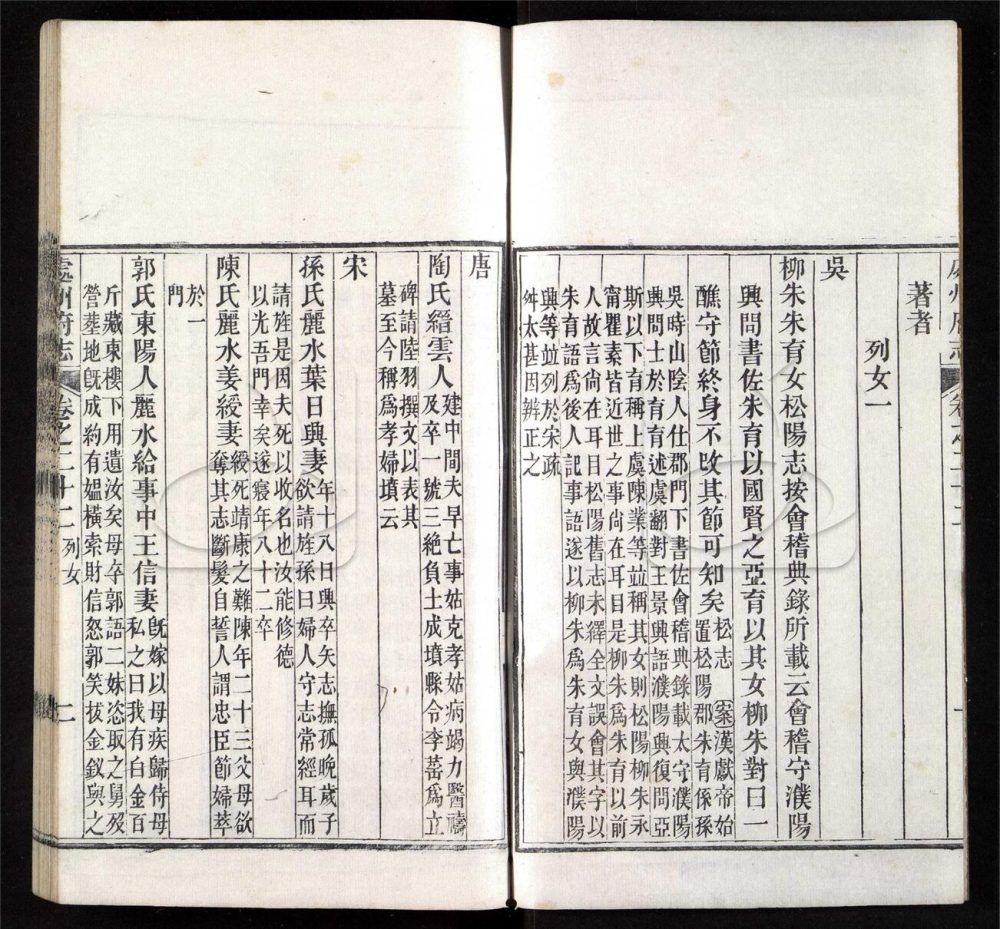 處州府志 卷之二十二 一
著者
列女一
吳
柳朱朱育女松陽志按會稽典錄所載云會稽守濮陽
興問書佐朱育以國賢之亞育以其女柳朱對曰一
醮守節終身不改其節可知矣松志 案漢獻帝始
置松陽郡朱育係孫
吳時山陰人仕郡門下書佐會稽典錄載太守濮陽
興問士於育育述虞翻對王景興語濮陽興復問亞
斯以下育稱上虞陳業等並稱其女則松陽柳朱永
甯瞿素皆近世之事尚在耳目是柳朱爲朱育以前
人故言尚在耳目松陽舊志未繹全文誤會其字以
朱育語爲後人記事語遂以柳朱爲朱育女與濮陽
興等並列於宋疏
舛太甚因辨正之
唐
陶氏縉雲人建中間夫早亡事姑克孝姑病竭力醫禱
及卒一號三絕負土成墳縣令李蕚爲立
碑請陸羽撰文以表其
墓至今稱爲孝婦墳云
宋
孫氏麗水葉日興妻年十八日興卒矢志撫孤晚歲子
欲請旌孫曰婦人守志常經耳而
請旌是因夫死以收名也汝能修德
以光吾門幸矣遂寢年八十二卒
陳氏麗水姜綬妻綬死靖康之難陳年二十三父母欲
奪其志斷髮自誓人謂忠臣節婦萃
於一
門
郭氏東陽人麗水給事中王信妻既嫁以母疾歸侍母
私之曰我有白金百
斤藏東樓下用遺汝矣母卒郭語二妹恣取之舅歿
營葬地既成約有媼橫索財信怒郭笑拔金釵與之
處州府志 卷之二十二 列女 二